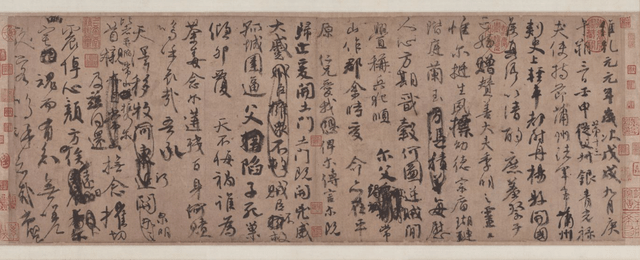 維乾元元年歲次戊戌九月庚
午朔三日壬申第十三叔銀青光祿
夫使持節蒲州諸軍事蒲州
刺史上輕車都尉丹楊縣開國
侯真卿以清酌庶羞祭于
亡姪贈贊善大夫季明之靈曰
惟爾挺生夙標幼德宗廟瑚璉
階庭蘭玉每慰
人心方期戩穀何圖逆賊閒
釁稱兵犯順爾父竭誠常
山作郡余時受命亦在平
原仁兄愛我俾爾傳言爾既
歸止爰開土門土門既開兇威
大蹙賊臣不救
孤城圍逼父陷子死巢
傾卵覆天不悔禍誰為
荼毒念爾遘殘百身何贖
嗚呼哀哉吾承
天澤移牧河關泉明
比者再陷常山攜爾
首櫬及茲同還撫念摧切
震悼心顏方俟遠日
卜爾幽宅魂而有知無嗟
久客嗚呼哀哉尚饗